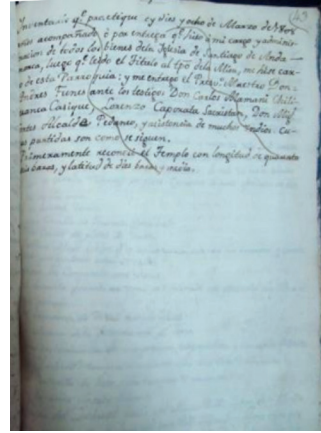 49
Inventario qᵉ practiqué y dias y ocho de Marzo de
acompañado ó por entrega qᵉ hizo á mi cargo y adminis-
tracion de todos los bienes de la Iglesia de Santiago de Anda-
marca, luego qᵉ leido el Titulo al tpõ de la Misa,
ra de esta Parroquia: y me entregó el Padre Maestro Don
Andres Frenes ante los testigos Don Carlos Mamani Chili-
guanca Casique, Lorenzo Caporata Sacristan, Don
Alcalde Pedaneo, y asistencia de muchos Yndios. Cu-
yas partidas son como se siguen.
Primeramente reconocí el Templo con longitud de quarenta
varas, y latitud de dies baras y media.